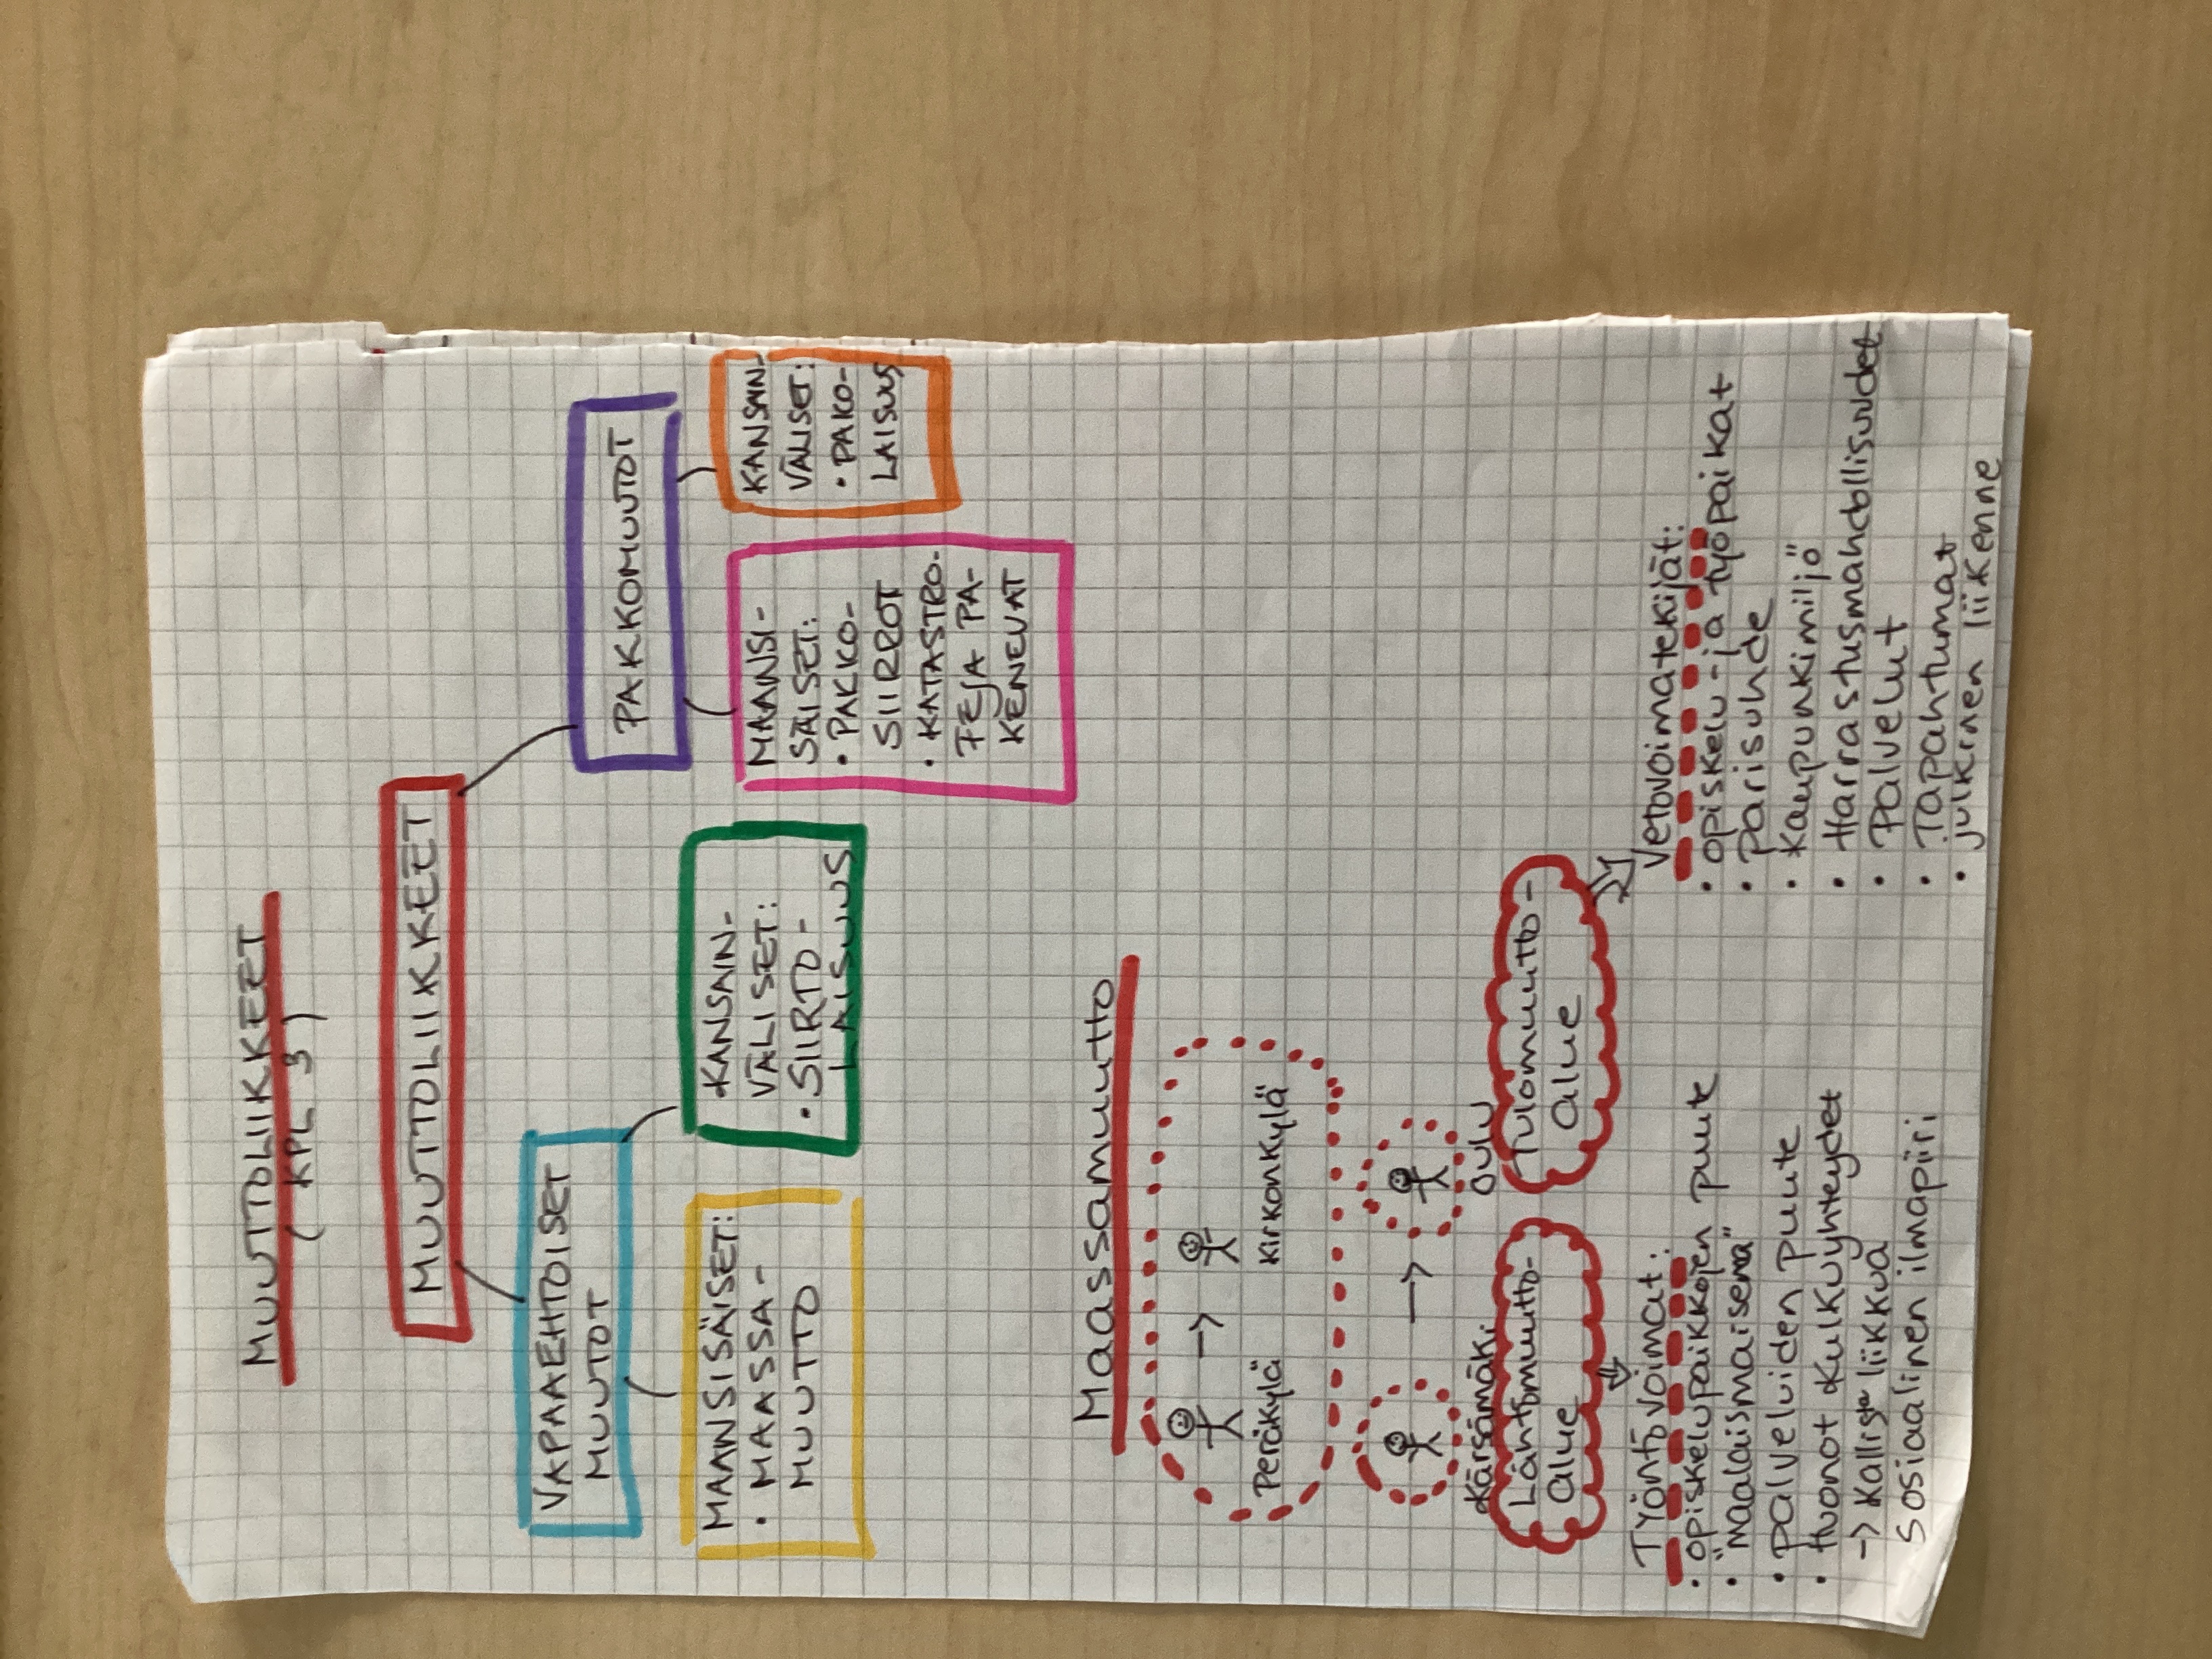 MUUTTOLIIKKEET
(KPL 3)
MUUTTOLIIKKEET
VAPAAEHTOISET
MUUTOT
PAKKOMUUTOT
MAANSISÄISET:
• MAASSA-
MUUTTO
KANSAIN-
VÄLISET:
• SIIRTO-
LAISUUS
MAANSI-
SÄISET:
• PAKKO-
SIIRROT
• KATASTRO-
FEJA PA-
KENEVAT
KANSAIN-
VÄLISET:
• PAKO-
LAISUUS
Maassamuutto
Peräkylä
Kirkonkylä
Kärsämäki
Oulu
Lähtömuutto-
alue
Tulomuutto-
alue
Työntövoimat:
• opiskelupaikkojen puute
• "maalaismaisema"
• palveluiden puute
• Huonot kulkuyhteydet
-> Kallista liikkua
Sosiaalinen ilmapiiri
Vetovoimatekijät:
• opiskelu- ja työpaikat
• parisuhde
• Kaupunkimiljö
• Harrastusmahdollisuudet
• Palvelut
• Tapahtumat
• julkinen liikenne